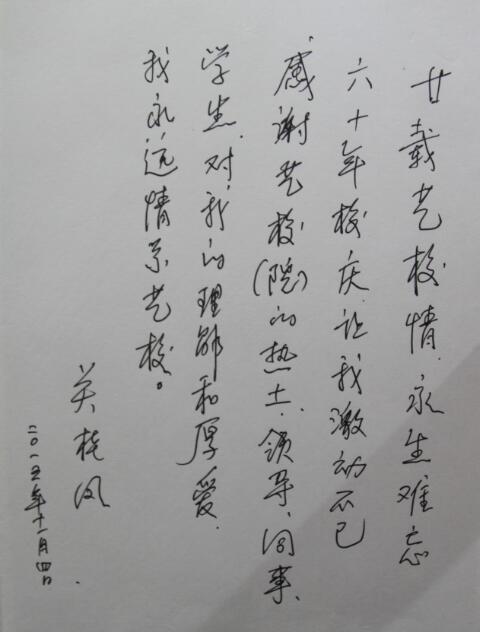 廿载艺校情，永生难忘
六十年校庆，让我激动不已
感谢艺校(院)的热土、领导、同事、
学生，对我的理解和厚爱，
我永远情系艺校。
桂凤
二〇一五年十一月四日